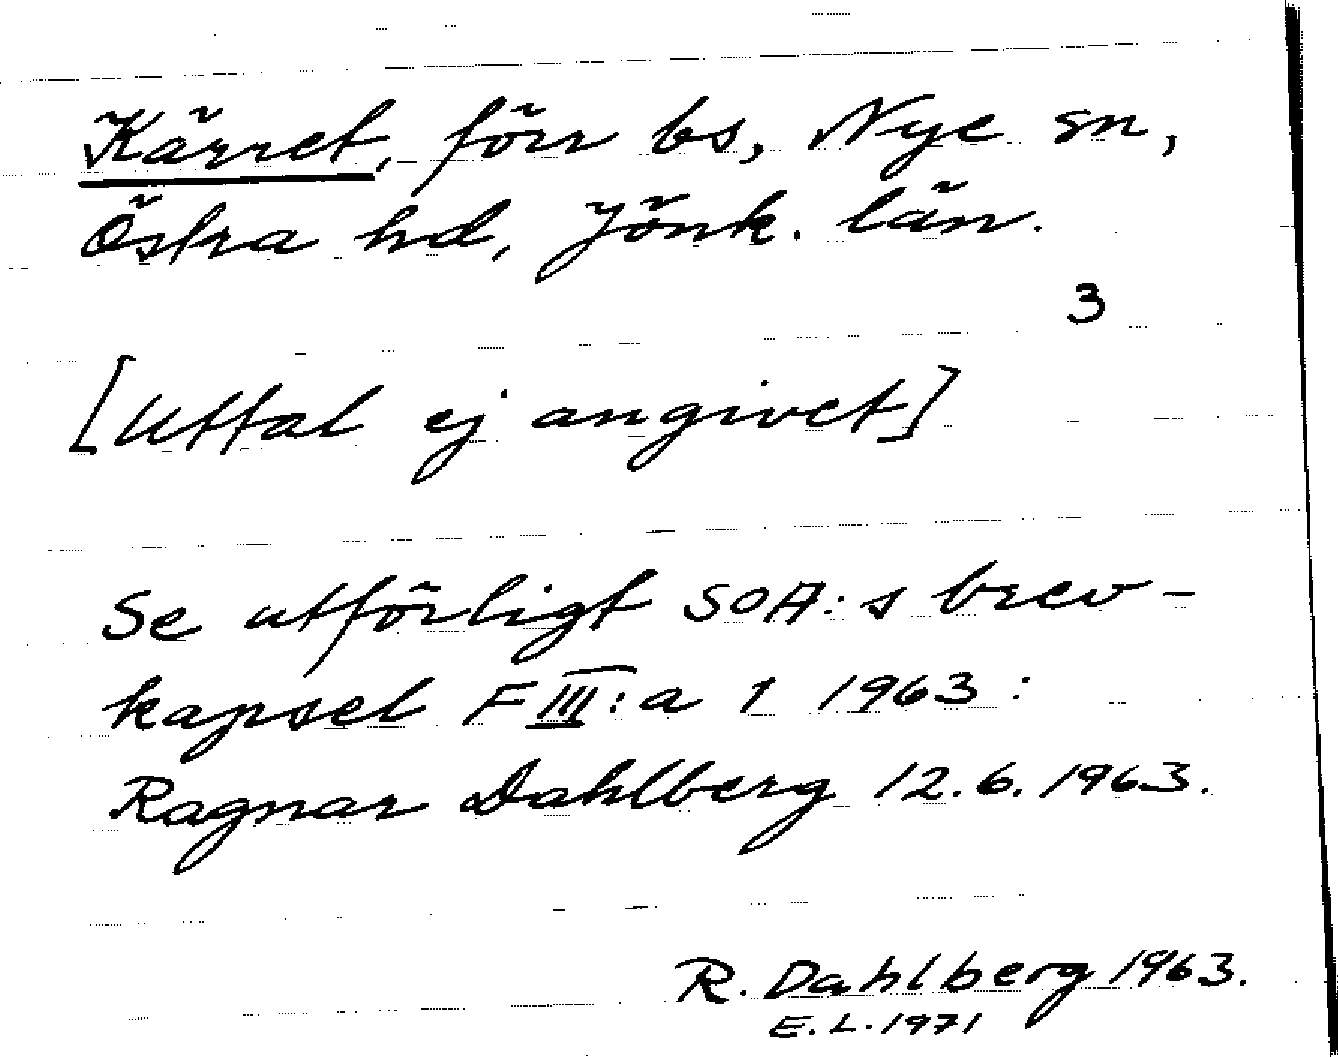 Kärret, förr bs, Nye sn,
Östra hd, Jönk. län.
3
[Uttal ej angivet]
Se utförligt SOA:s brev-
kapsel F III:a 1 1963:
Ragnar Dahlberg 12.6.1963.
R. Dahlberg 1963.
E.L. 1971